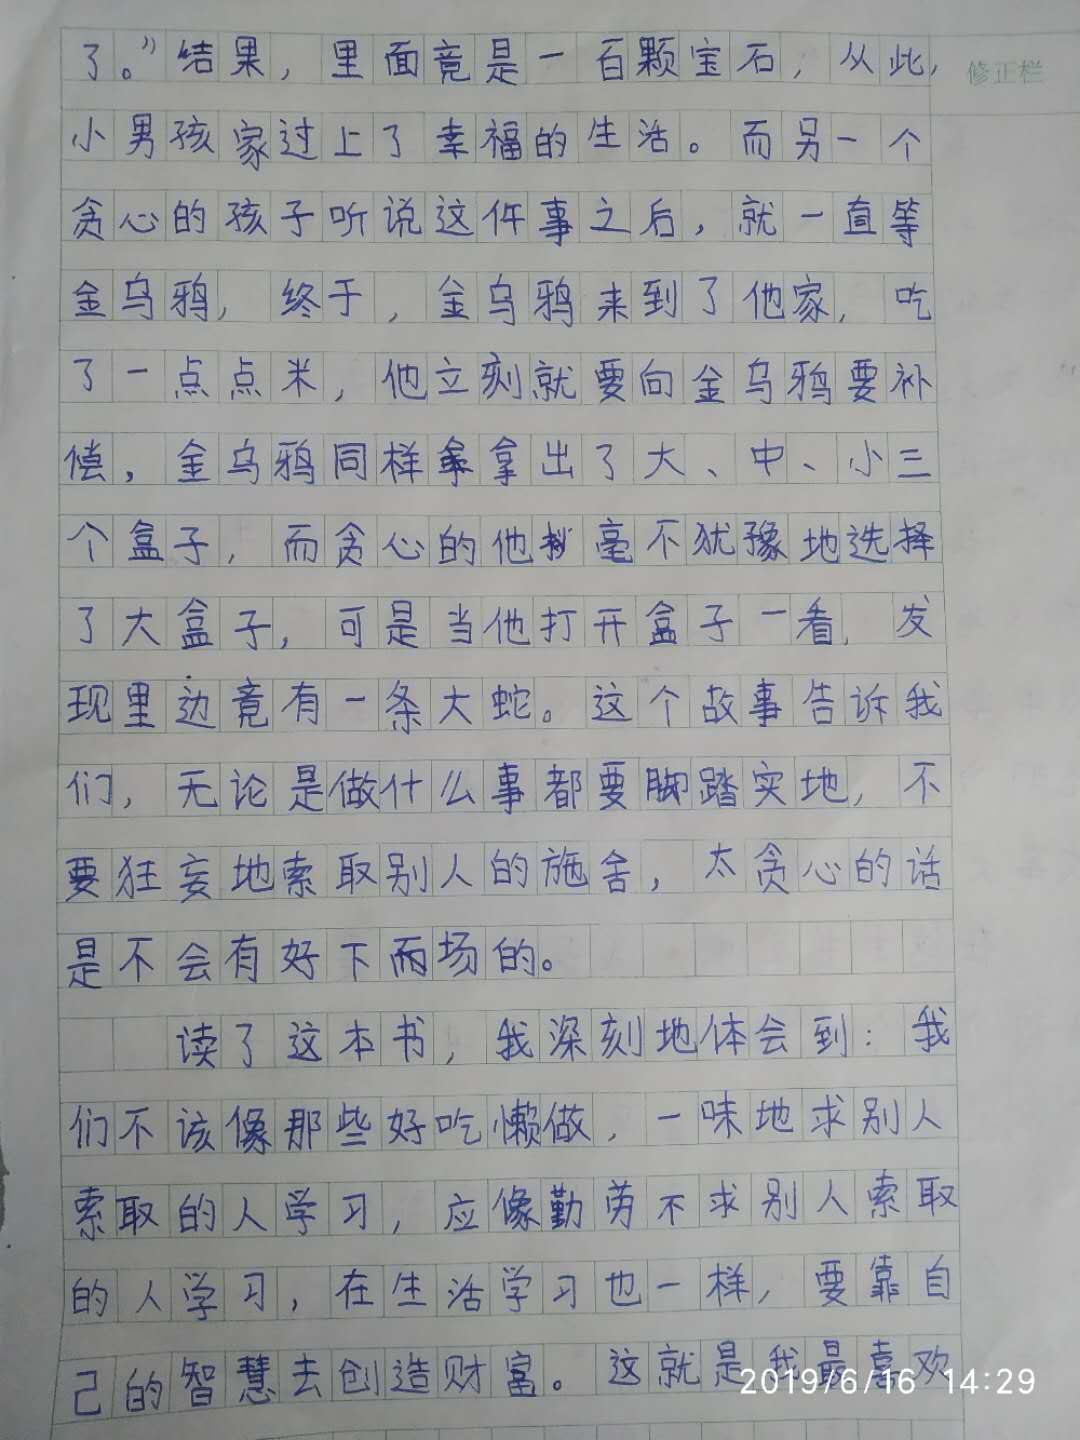 了。”结果，里面竟是一百颗宝石，从此，
修正栏
小男孩家过上了幸福的生活。而另一个
贪心的孩子听说这件事之后，就一直等
金乌鸦，终于，金乌鸦来到了他家，吃
了一点点米，他立刻就要向金乌鸦要补
偿，金乌鸦同样拿出了大、中、小三
个盒子，而贪心的他毫不犹豫地选择
了大盒子，可是当他打开盒子一看，发
现里边竟有一条大蛇。这个故事告诉我
们，无论是做什么事都要脚踏实地，不
要狂妄地索取别人的施舍，太贪心的话
是不会有好下场的。
读了这本书，我深刻地体会到：我
们不该像那些好吃懒做，一味地求别人
索取的人学习，应像勤劳不求别人索取
的人学习，在生活学习也一样，要靠自
己的智慧去创造财富。这就是我最喜欢
2019/6/16 14:29